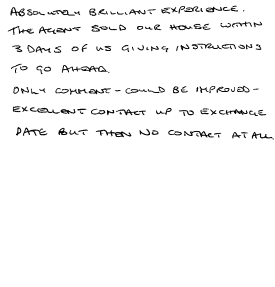 ABSOLUTELY BRILLIANT EXPERIENCE.
THE AGENT SOLD OUR HOUSE WITHIN
3 DAYS OF US GIVING INSTRUCTIONS
TO GO AHEAD.
ONLY COMMENT - COULD BE IMPROVED -
EXCELLENT CONTACT UP TO EXCHANGE
DATE BUT THEN NO CONTACT AT ALL.